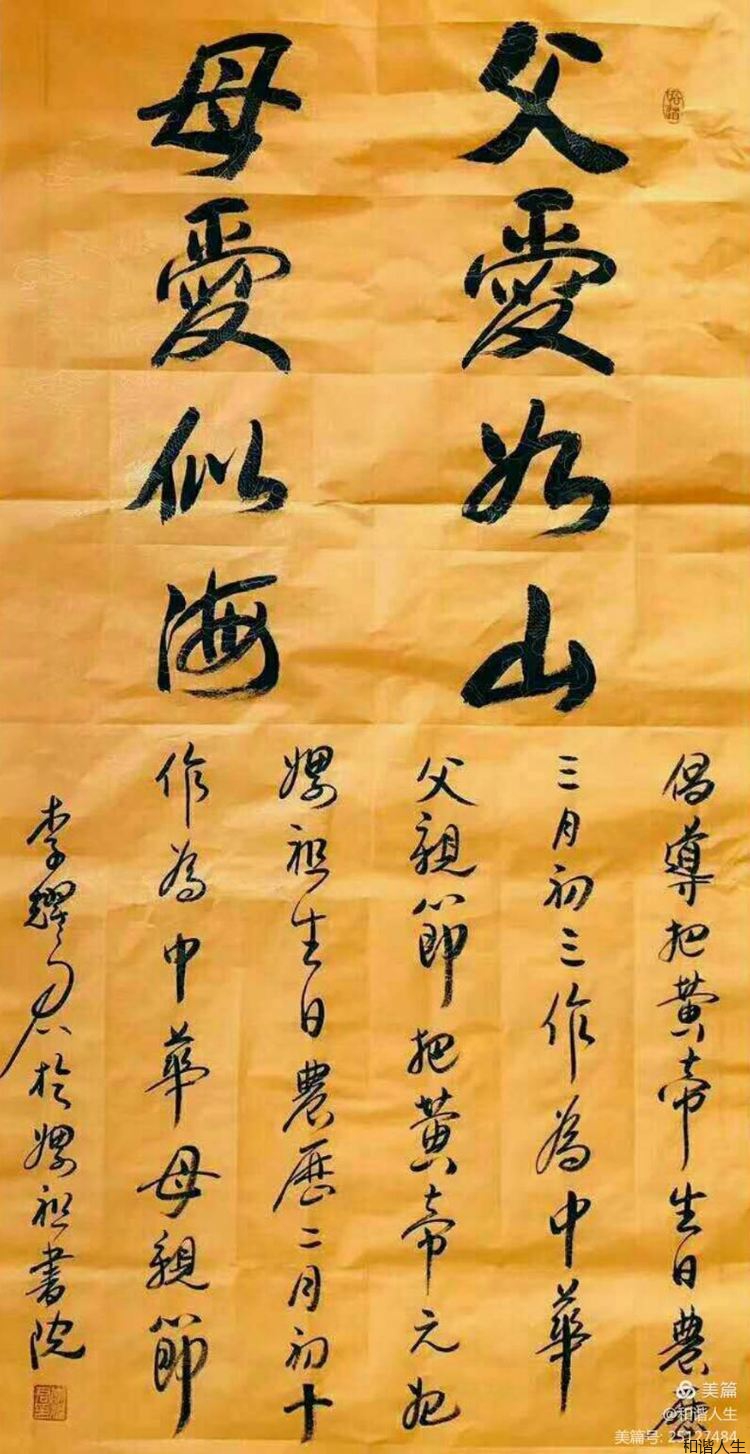 父愛如山
母愛似海
倡導把黃帝生日農歷
三月初三作為中華
父親節把黃帝元妃
嫘祖生日農歷二月初十
作為中華母親節
李耀於嫘祖書院
美篇
@和谐人生
美篇号: 25127484
和谐人生